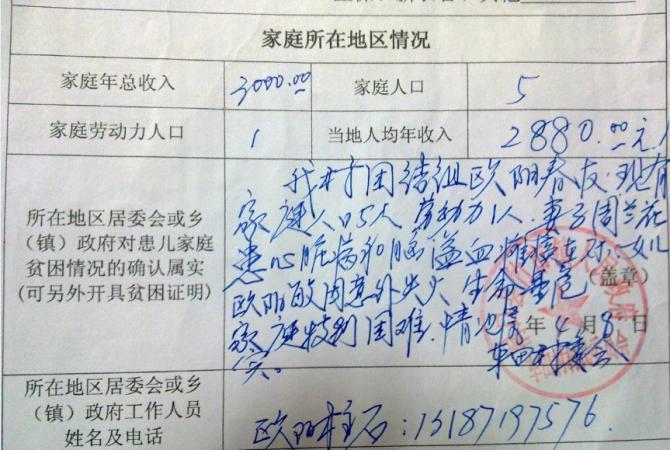 家庭所在地区情况
家庭年总收入 3000.00 家庭人口 5
家庭劳动力人口 1 当地人均年收入 2880.00元
所在地区居委会或乡
（镇）政府对患儿家庭
贫困情况的确认属实
(可另外开具贫困证明)
我村团结组欧阳春友.现有
家庭人口5人 劳动力1人.妻子周兰花
患心脏病和脑溢血瘫痪在床.女儿
欧阳 因意外失火 生命垂危
家庭特别困难.情况属
实。
（盖章）
年4月8日
车田村委会
所在地区居委会或乡
（镇）政府工作人员
姓名及电话
欧阳柱石：13187197576.